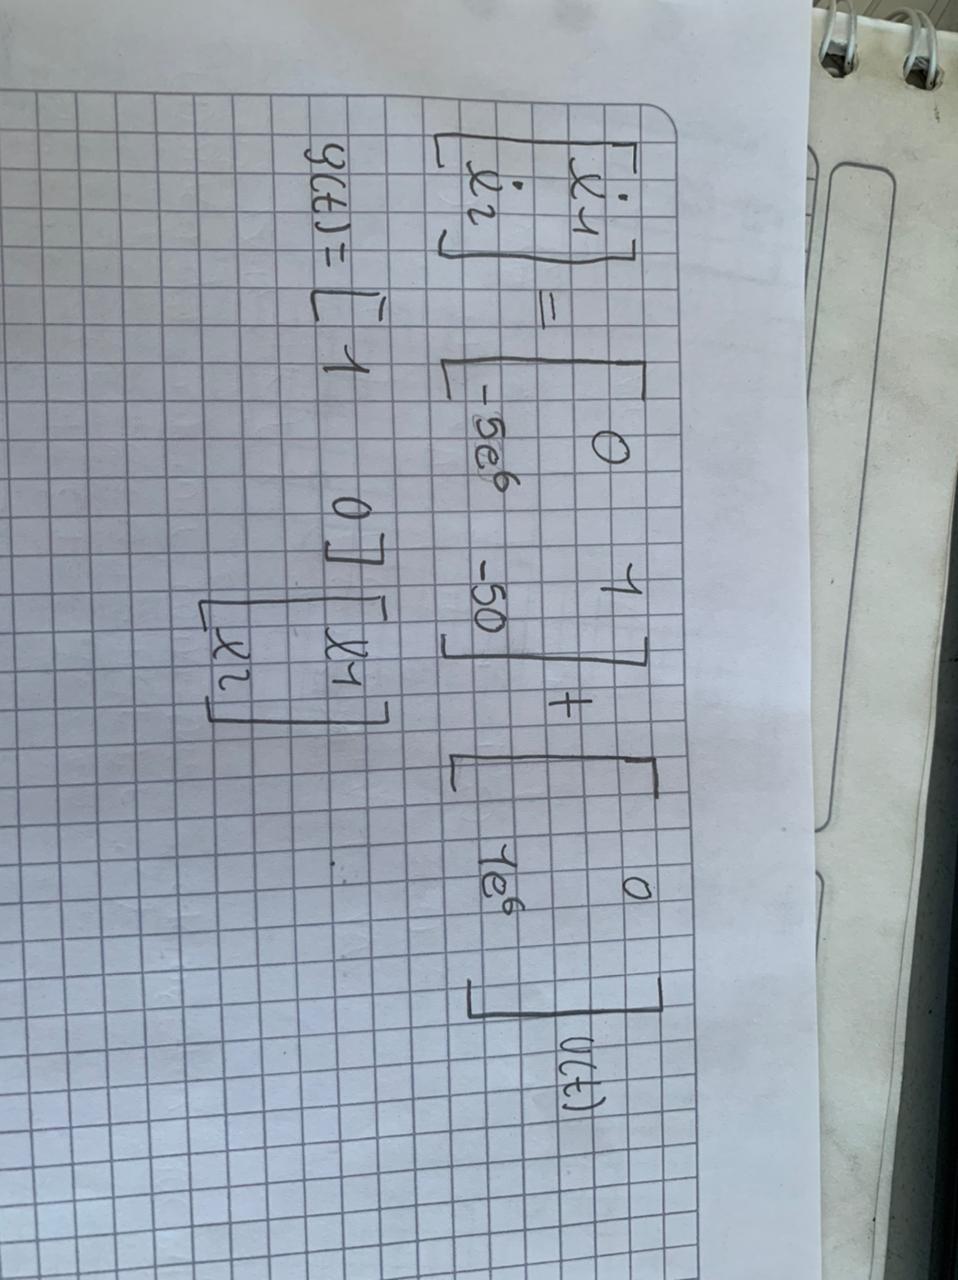 [ẋ1 ẋ2] = [0 1 -5e⁶ -50] + [0 1e⁶] U(t)
y(t) = [1 0] [x1 x2]